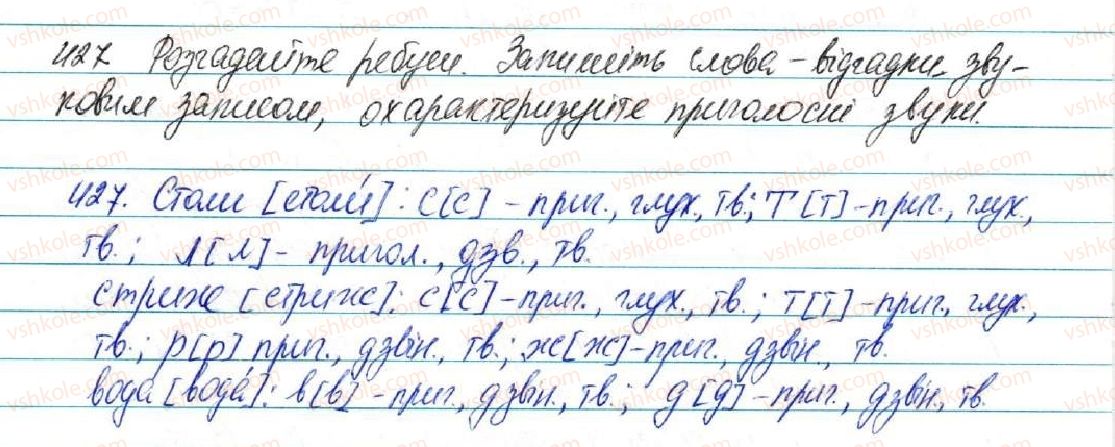 427 Розгадайте ребуси. Запишіть слова - відгадки зву-
ковим записом, охарактеризуйте приголосні звуки.
427. Столи [столи́]: С[с] - приг., глух., тв.; Т [т] - приг., глух.,
тв.; Л[л] - пригол., дзв., тв.
стриж [стриж]: с[с] - приг., глух., тв.; Т[т] - приг., глух.,
тв.; р[р] приг., дзвін., тв.; ж[ж] - приг., дзвін., тв.
вода [вода́]: в[в] - приг., дзвін., тв.; д[д] - приг., дзвін., тв.